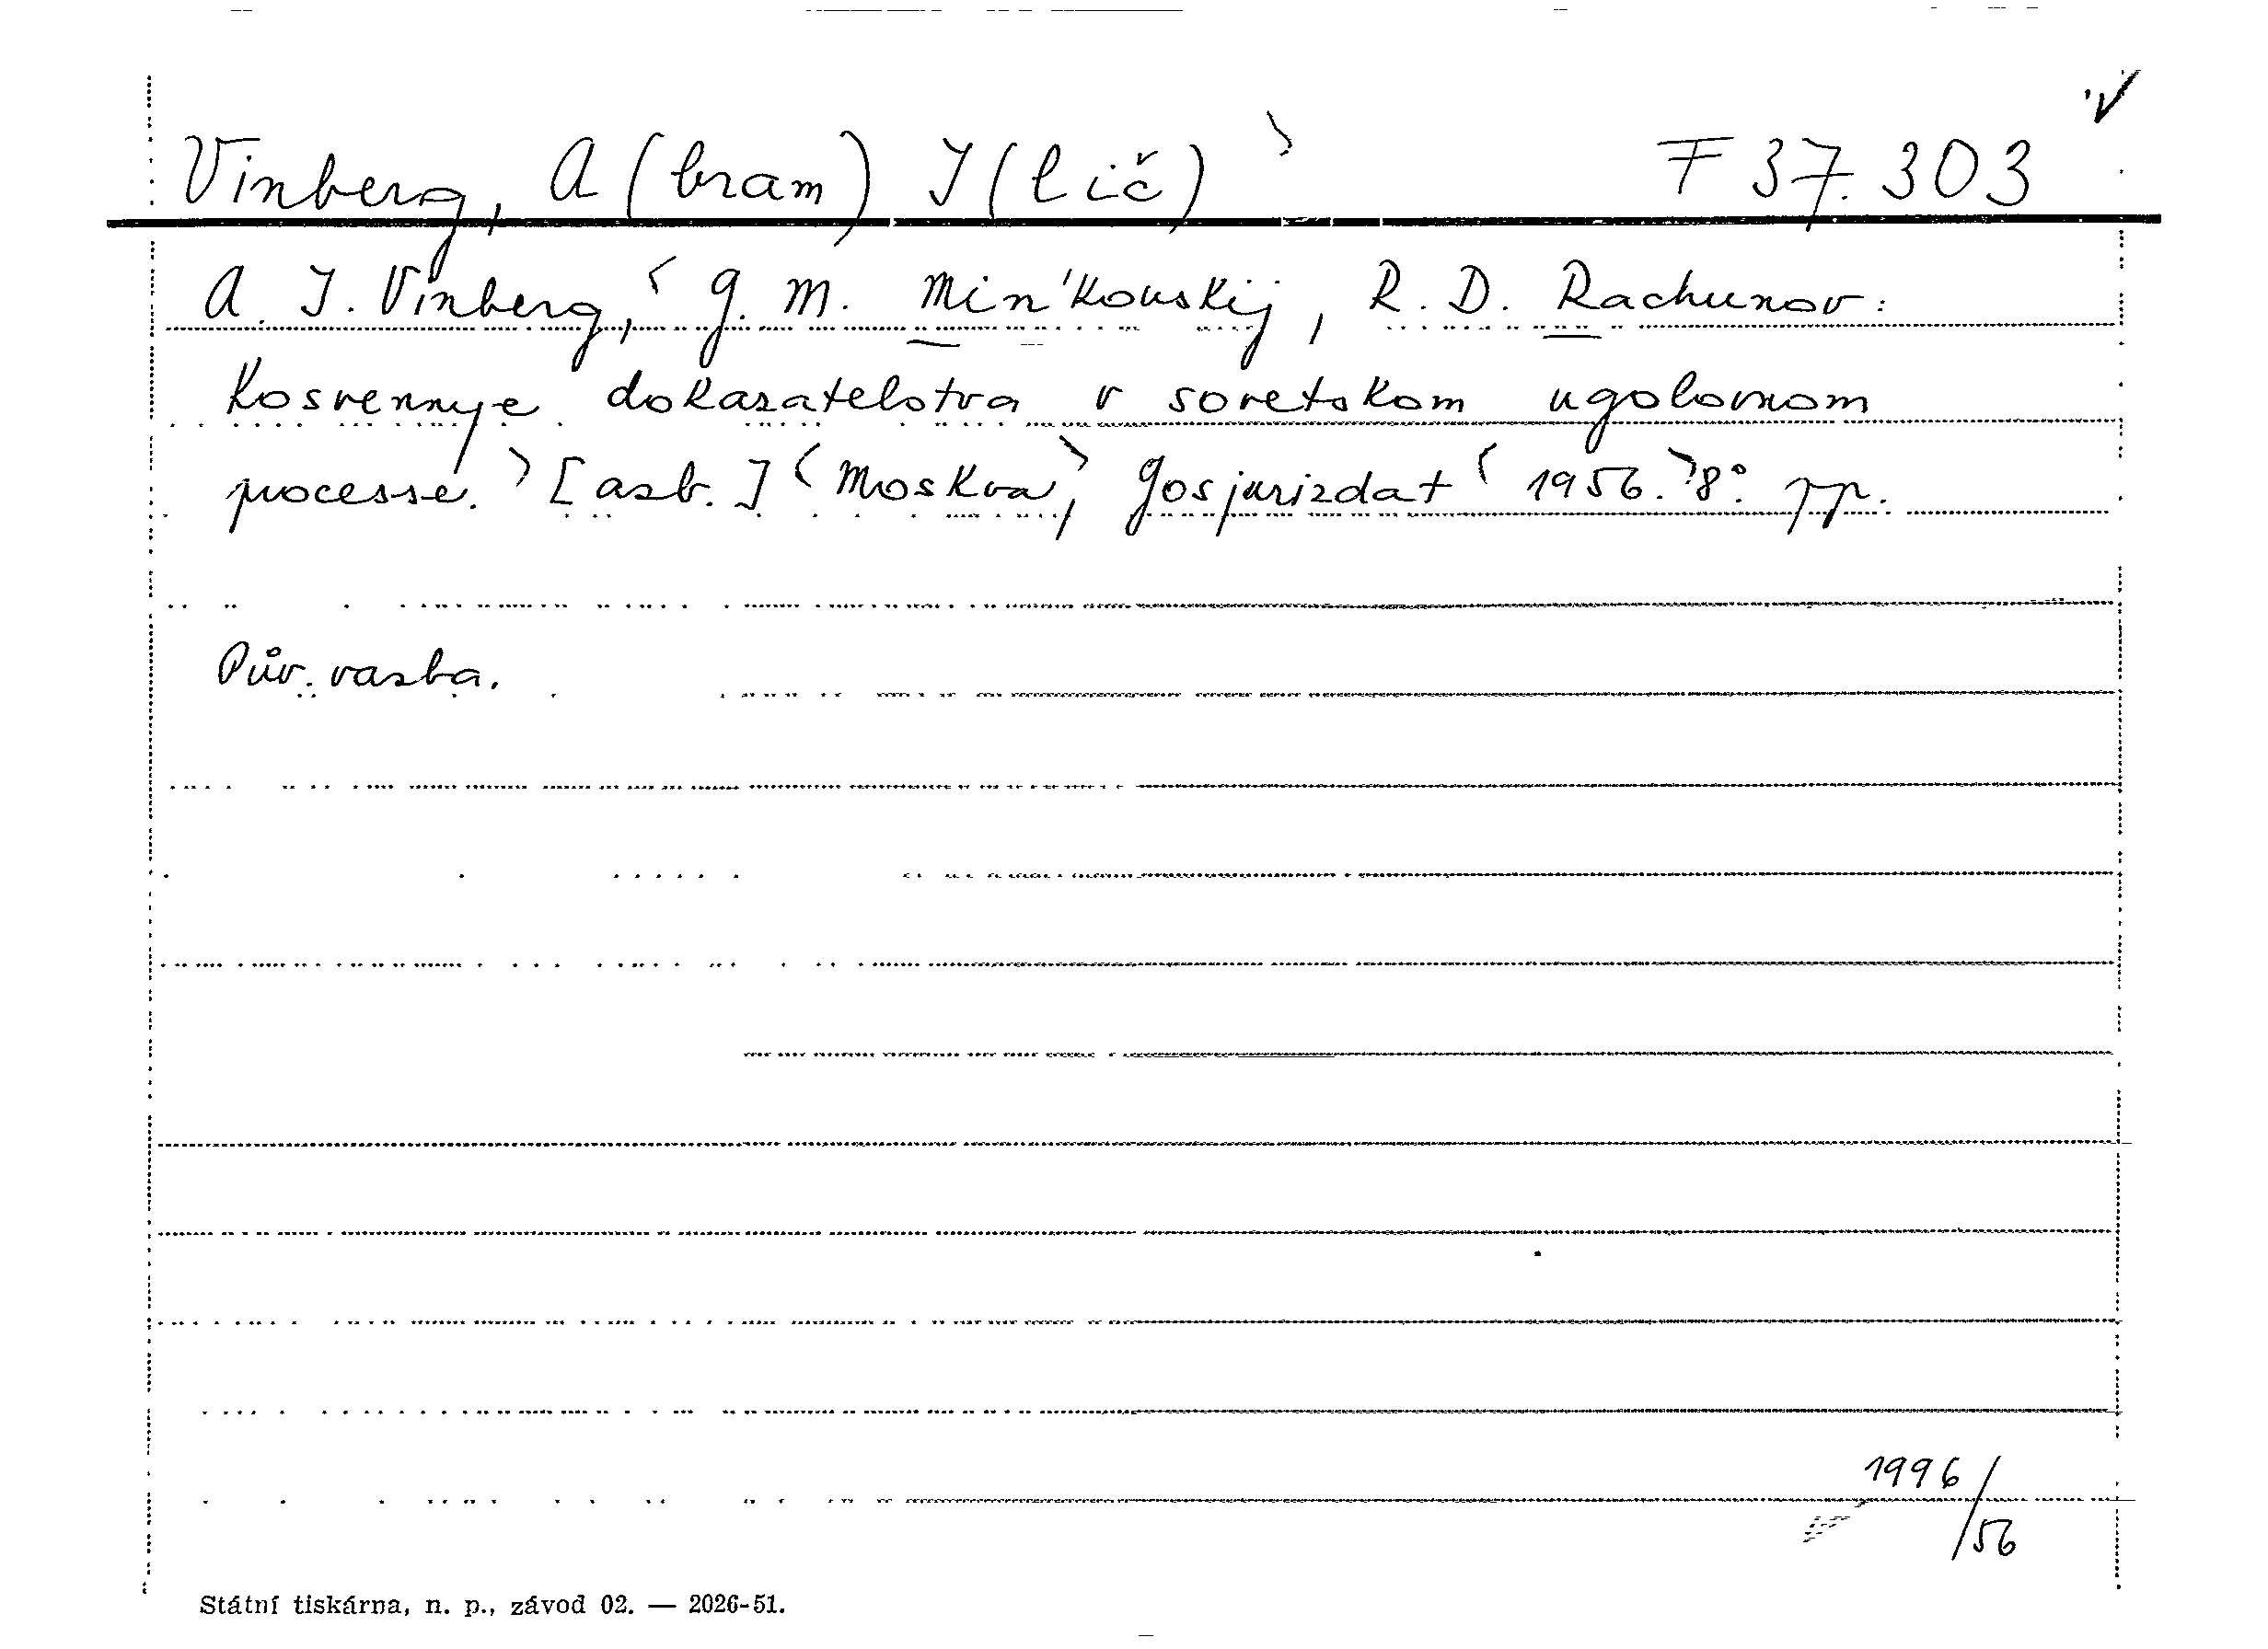 Vinberg, A(bram) I(lič) F 37.303
A. I. Vinberg, G. M. Min'kovskij, R. D. Rachunov:
Kosvennye dokazatelstva v sovetskom ugolovnom
processe. [azb.] Moskva, Gosjurizdat 1956. 8°. pp.
Pův. vazba.
1996/56
Státní tiskárna, n. p., závod 02. — 2026-51.